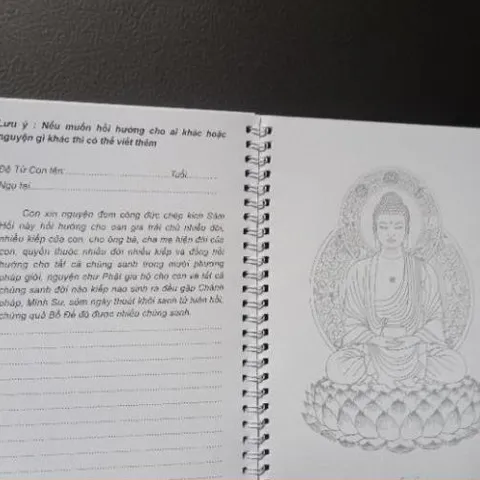 Lưu ý : Nếu muốn hồi hướng cho ai khác hoặc
nguyện gì khác thì có thể viết thêm
Đệ Tử Con tên: Tuổi
Ngụ tại
Con xin nguyện đem công đức chép kinh Sám
Hối này hồi hướng cho oan gia trái chủ nhiều đời,
nhiều kiếp của con, cho ông bà, cha mẹ hiện đời của
con, quyến thuộc nhiều đời nhiều kiếp và đồng hồi
hướng cho tất cả chúng sanh trong mười phương
pháp giới, nguyện như Phật gia hộ cho con và tất cả
chúng sanh đời nào kiếp nào sinh ra đều gặp Chánh
pháp, Minh Sư, sớm ngày thoát khỏi sanh tử luân hồi,
chứng quả Bồ Đề độ được nhiều chúng sanh.